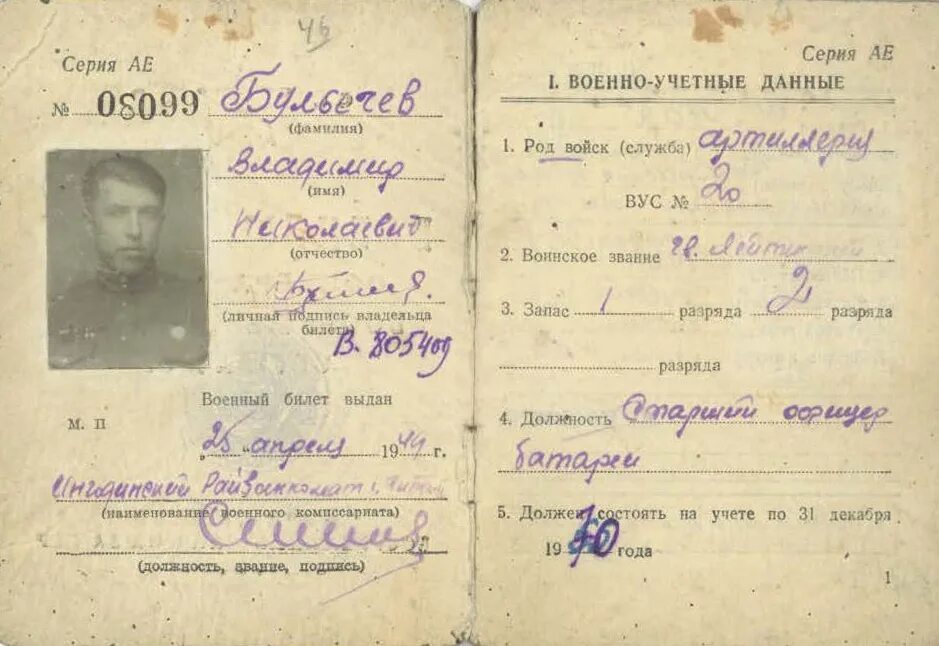 46
Серия АЕ
№ 08099 Булычев
(фамилия)
Владимир
(имя)
Николаевич
(отчество)
(личная подпись владельца
билета)
В. 805409
Военный билет выдан
М. П
„25" апреля 1949 г.
Ингодинский Райвоенкомат г. Читы
(наименование военного комиссариата)
(должность, звание, подпись)
Серия АЕ
I. ВОЕННО-УЧЕТНЫЕ ДАННЫЕ
1. Род войск (служба) артиллерия
ВУС № 20
2. Воинское звание гв. Лейтенант
3. Запас 1 разряда 2 разряда
разряда
4. Должность Старший офицер
батареи
5. Должен состоять на учете по 31 декабря
19 70 года
1